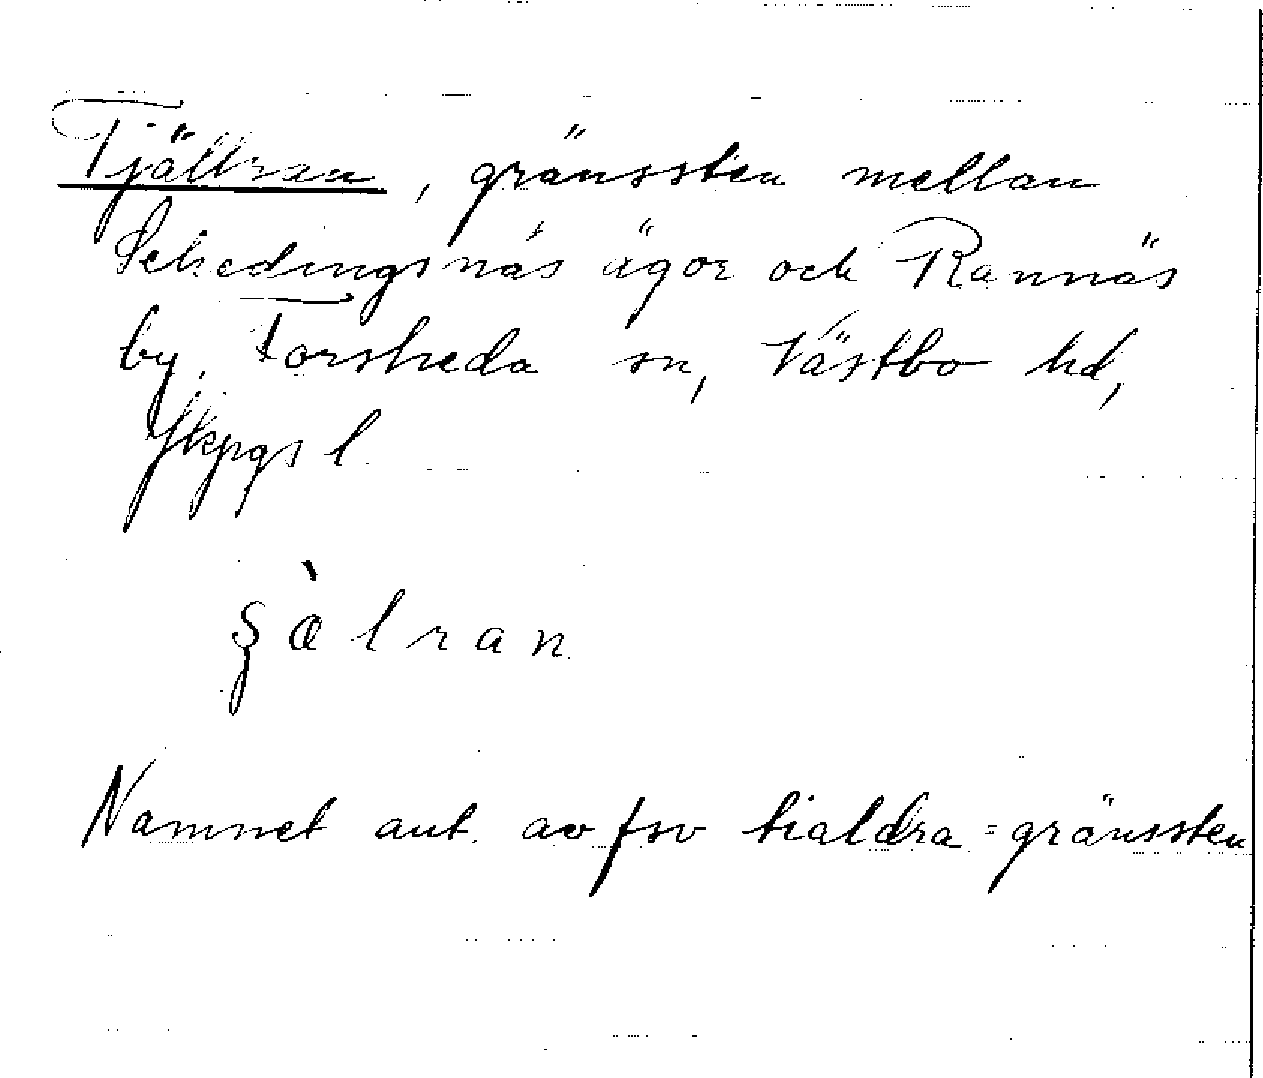 Tjällran, gränssten mellan
Schedingsnäs ägor och Rannäs
by, Forsheda sn, Västbo hd,
Jkpgs l.
ʂæ̀lran
Namnet ant. av fsv tialdra = gränssten